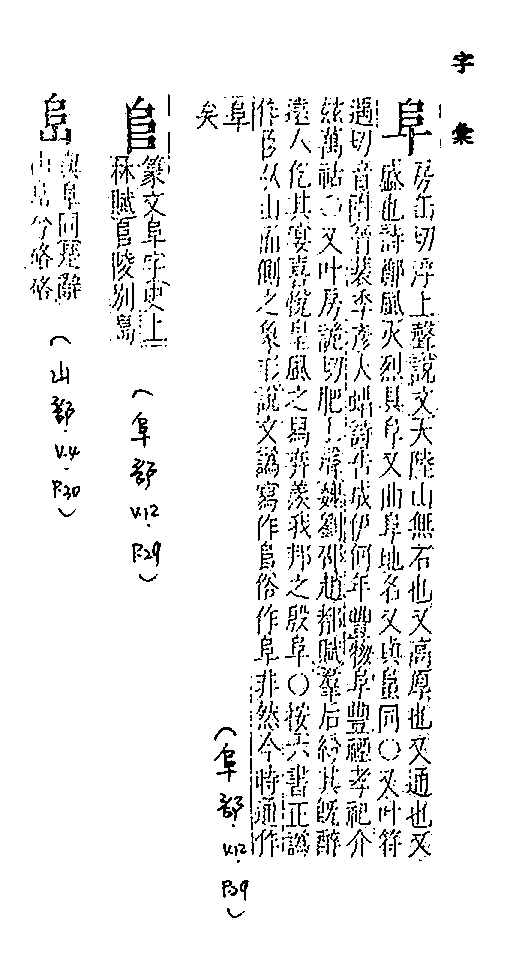 字彙
阜 房缶切浮上聲說文大陸山無石也又高原也又通也又
盛也詩鄭風火烈具阜又曲阜地名又與𨸏同○又叶符
遇切音附晉裴季彥大蜡詩告成伊何年豐物阜豐禋孝祀介
茲萬祜○又叶房詭切肥上聲魏劉邵趙都賦羣后紛其旣醉
遠人化其宴喜悅皇風之舄弈羨我邦之殷阜○按六書正譌
作𨸏从山而側之象形說文譌寫作𨸏俗作阜非然今時通作
阜矣
(阜部. V.12. P.29)
𨸏 篆文阜字史上
林賦𨸏陵別島
(阜部. V.12. P.29)
與阜同楚辭
山𡶨兮峈峈
(山部. V.4. P.30)